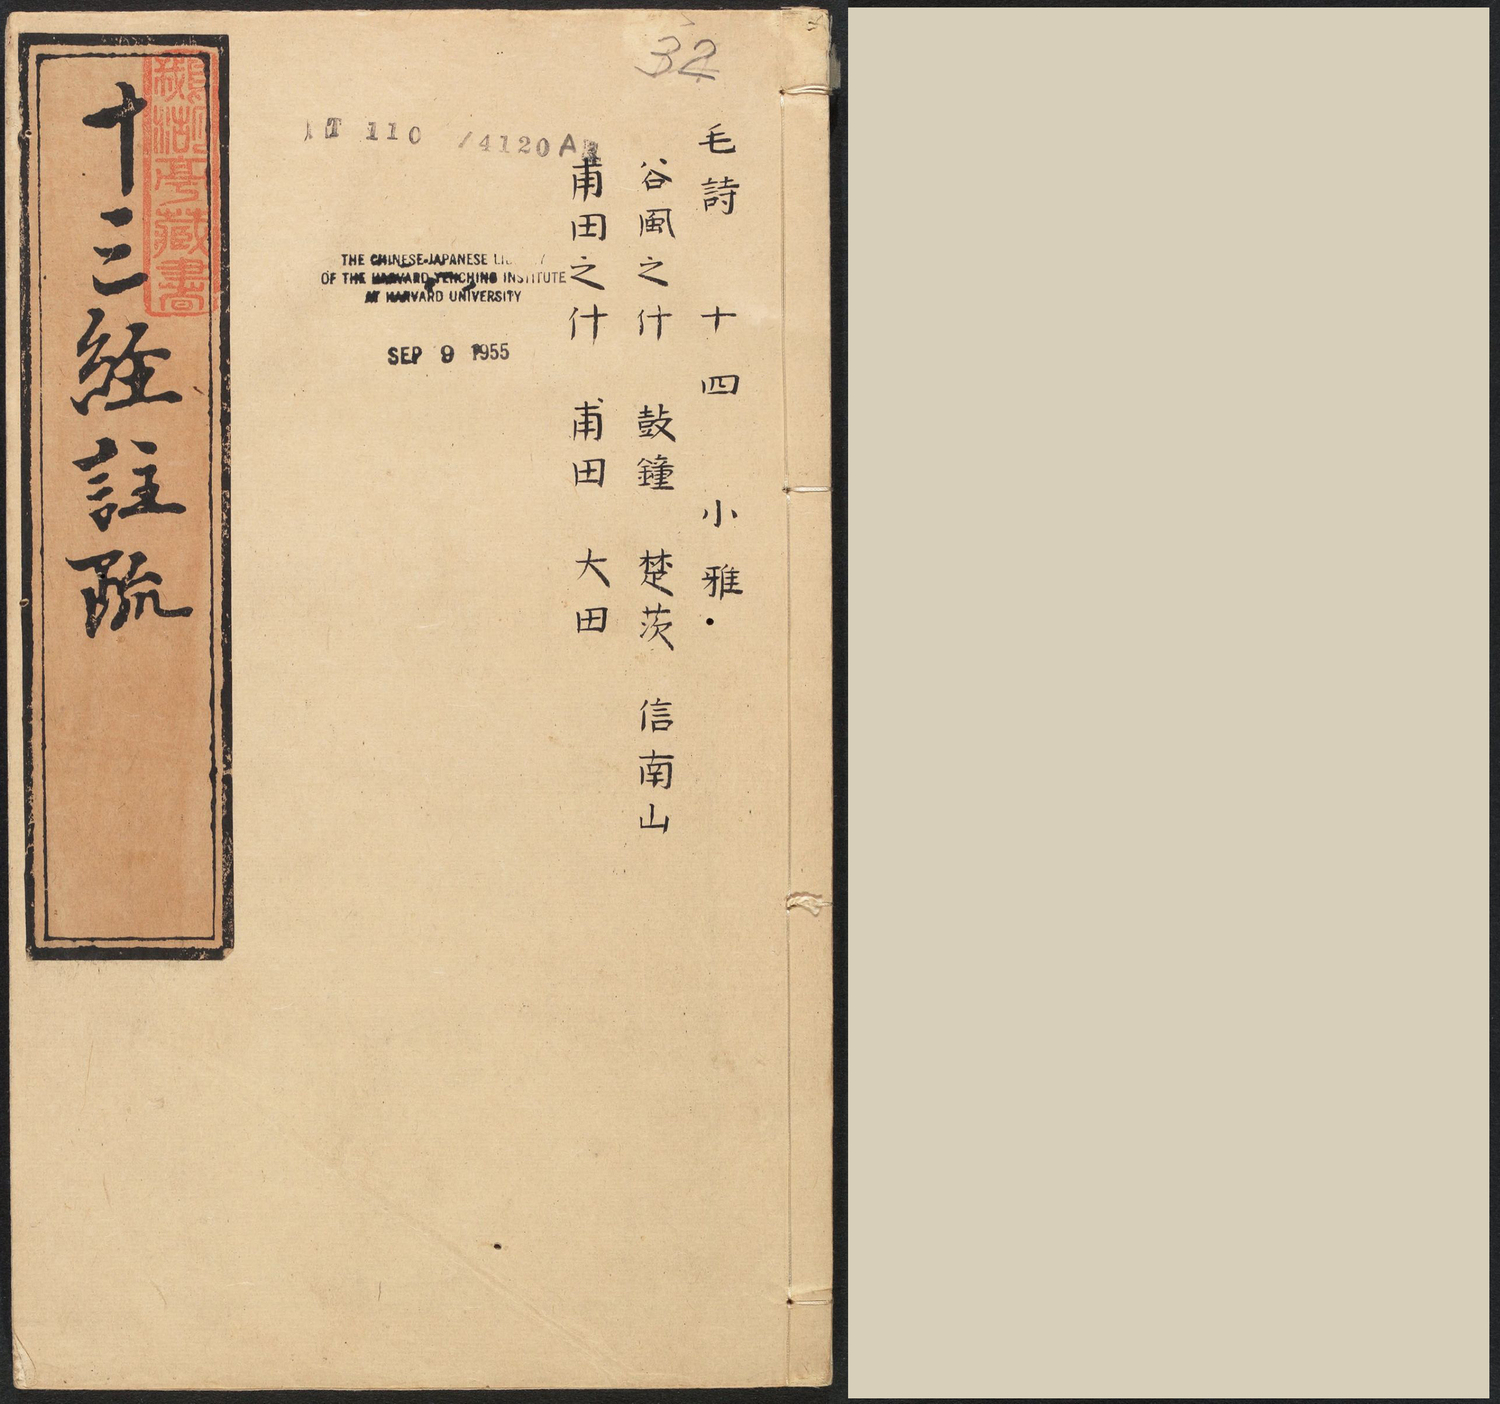 32
毛詩 十四 小雅
谷風之什 鼓鐘 楚茨 信南山
甫田之什 甫田 大田
T 110 /4120A
THE CHINESE-JAPANESE
OF THE HARVARD-YENCHING INSTITUTE
AT HARVARD UNIVERSITY
SEP 9 1955
十三經註疏
藏書